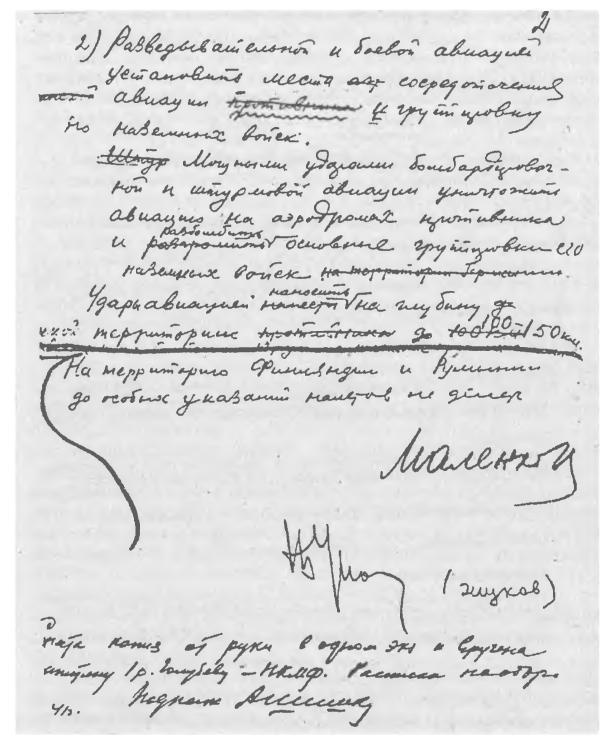 2
2) Разведывательной и боевой авиацией
установить места сосредоточения
авиации противника и группировку
наземных войск.
Штур Мощными ударами бомбардировоч-
ной и штурмовой авиации уничтожить
авиацию на аэродромах противника
разбомбить
и разгромить основные группировки его
наземных войск на территории Германии.
наносить
Удары авиацией нанести на глубину до
территории противника до 100 км 100-150 км.
На территорию Финляндии и Румынии
до особых указаний налетов не делать
Маленков
(Жуков)
от руки в одном экз и вручена
1 р. Голубеву – НКМФ. Расписка на обор